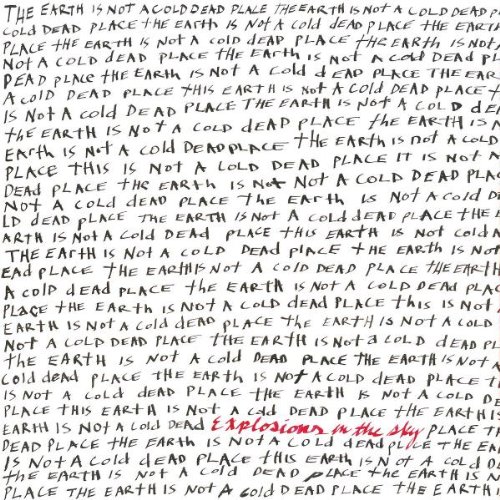 THE EARTH IS NOT A COLD DEAD PLACE THE EARTH IS NOT A COLD DEAD P
COLD DEAD PLACE THE EARTH IS NOT A COLD DEAD PLACE THE EARTH
PLACE THE EARTH IS NOT A COLD DEAD PLACE THE EARTH IS NOT
NOT A COLD DEAD PLACE THE EARTH IS NOT A COLD DEAD PL
DEAD PLACE THE EARTH IS NOT A COLD DEAD PLACE THE EAR
A COLD DEAD PLACE THIS EARTH IS NOT A COLD DEAD PLACE T
IS NOT A COLD DEAD PLACE THE EARTH IS NOT A COLD DE
THE EARTH IS NOT A COLD DEAD PLACE THE EARTH IS N
EARTH IS NOT A COLD DEAD PLACE THE EARTH IS NOT A COLD
PLACE THIS IS NOT A COLD DEAD PLACE IT IS NOT A
DEAD PLACE THE EARTH IS NOT NOT A COLD DEAD PLAC
NOT A COLD DEAD PLACE THE EARTH IS NOT A COLD DE
LD DEAD PLACE THE EARTH IS NOT A COLD DEAD PLACE THE
ARTH IS NOT A COLD DEAD PLACE THIS EARTH IS NOT COLD A
THE EARTH IS NOT A COLD DEAD PLACE THE EARTH IS NOT
EAD PLACE THE EARTH IS NOT A COLD DEAD PLACE THE EARTH
A COLD DEAD PLACE THE EARTH IS NOT A COLD DEAD PLAC
PLACE THE EARTH IS NOT A COLD DEAD PLACE THIS IS NOT
EARTH IS NOT A COLD DEAD PLACE THE EARTH IS NOT A COLD
NOT A COLD DEAD PLACE THE EARTH IS NOT A COLD DEAD PL
THE EARTH IS NOT A COLD DEAD PLACE THE EARTH IS NOT A
COLD DEAD PLACE THE EARTH IS NOT A COLD DEAD PLACE
IS NOT A COLD DEAD PLACE THE EARTH IS NOT A COLD DE
PLACE THIS EARTH IS NOT A COLD DEAD PLACE THE EARTH IS
EARTH IS NOT A COLD DEAD Explosions in the sky PLACE T
DEAD PLACE THE EARTH IS NOT A COLD DEAD PLACE THE EA
IS NOT A COLD DEAD PLACE THIS EARTH IS NOT A COLD D
THE EARTH IS NOT A COLD DEAD PLACE THE EARTH IS N
PLACE THE EARTH IS NOT A COLD DEAD PLACE THE EARTH